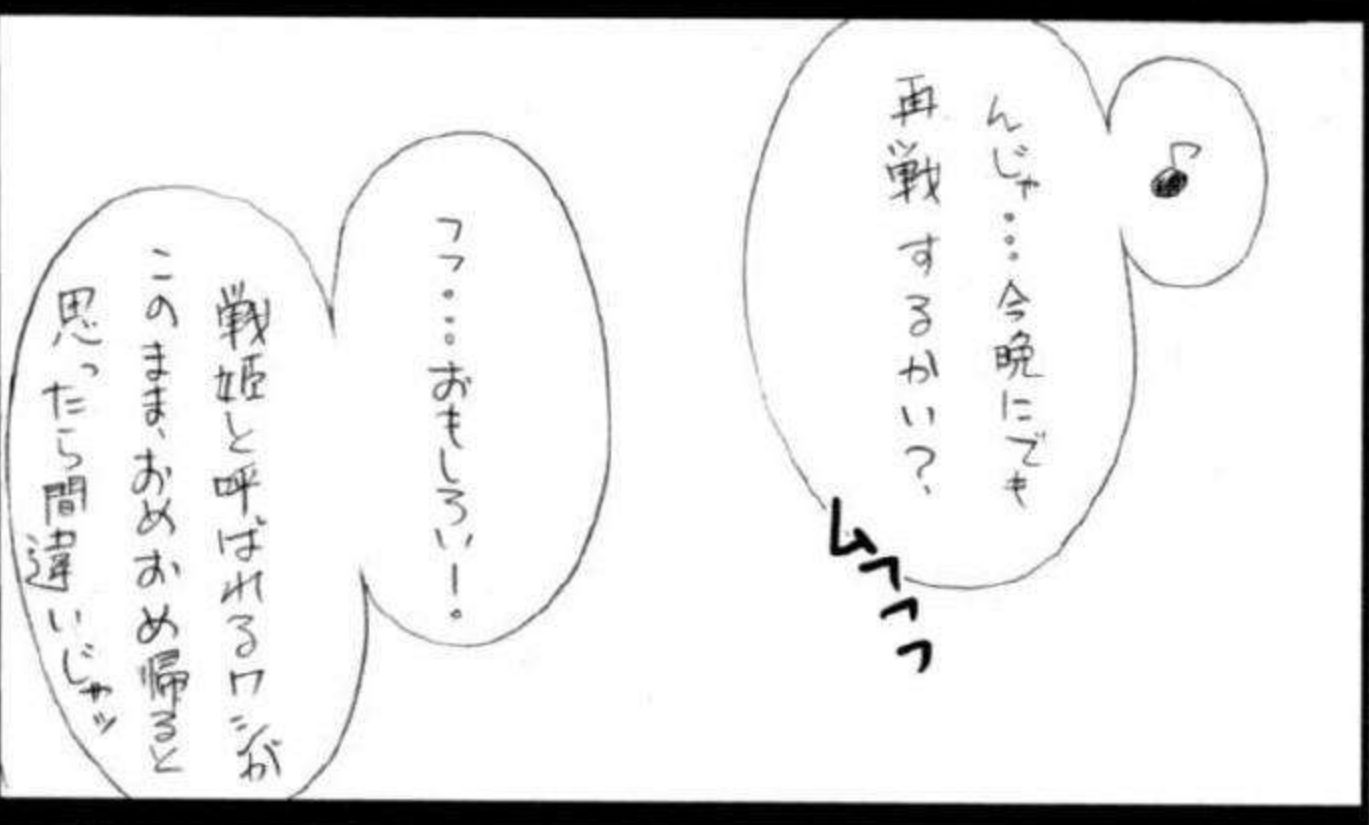 ♪
んじゃ…今晩にでも
再戦するかい?
ムフフフ
フフ…おもしろいー。
戦姫と呼ばれるワシが
このまま、おめおめ帰ると
思ったら間違いじゃッ